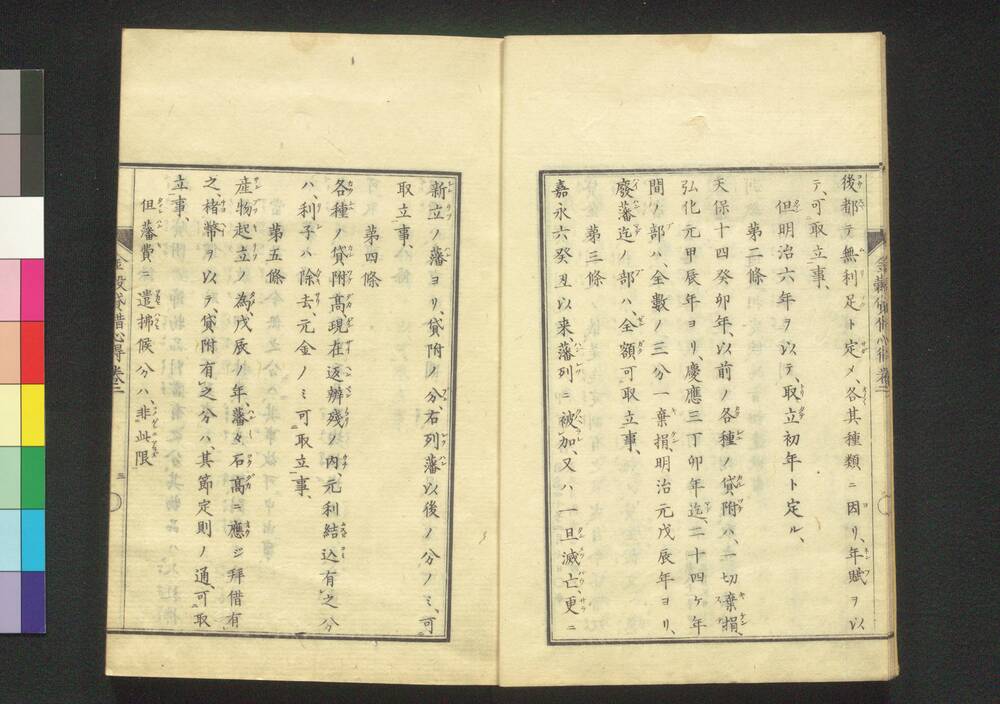 後都テ無利足ト定メ、各其種類ニ因リ、年賦ヲ以
テ、可取立事、
但明治六年ヲ以テ、取立初年ト定ル、
第二條
天保十四癸卯年、以前ノ各種ノ貸附ハ、一切棄捐、
弘化元甲辰年ヨリ、慶應三丁卯年迄、二十四ケ年
間ノ部ハ、全數ノ三分一棄捐、明治元戊辰年ヨリ、
廢藩迄ノ部ハ、全額可取立事、
第三條
嘉永六癸丑以来、藩列ニ被加、又ハ一旦滅亡、更ニ
新立ノ藩ヨリ、貸附ノ分、右列藩以後ノ分ノミ、可
取立事、
第四條
各種ノ貸附髙、現在返辨殘ノ内、元利結込有之分
ハ、利子ハ除去、元金ノミ可取立事、
第五條
産物起立ノ為、戊辰ノ年、藩々石髙ニ應ジ拜借有
之、楮幣ヲ以テ、貸附有之分ハ、其節定則ノ通、可取
立事、
但藩費ニ遣拂候分ハ、非此限
金穀貸借心得 卷二
三